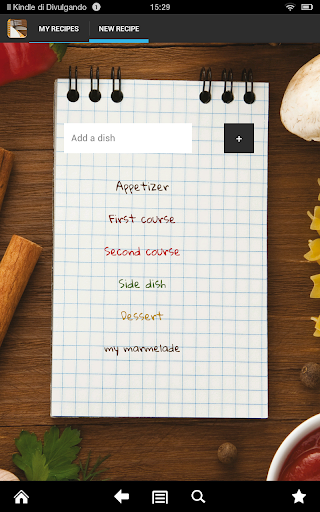 Il Kindle di Divulgando 1 15:29
MY RECIPES NEW RECIPE
Add a dish +
Appetizer
First course
Second course
Side dish
Dessert
my marmelade